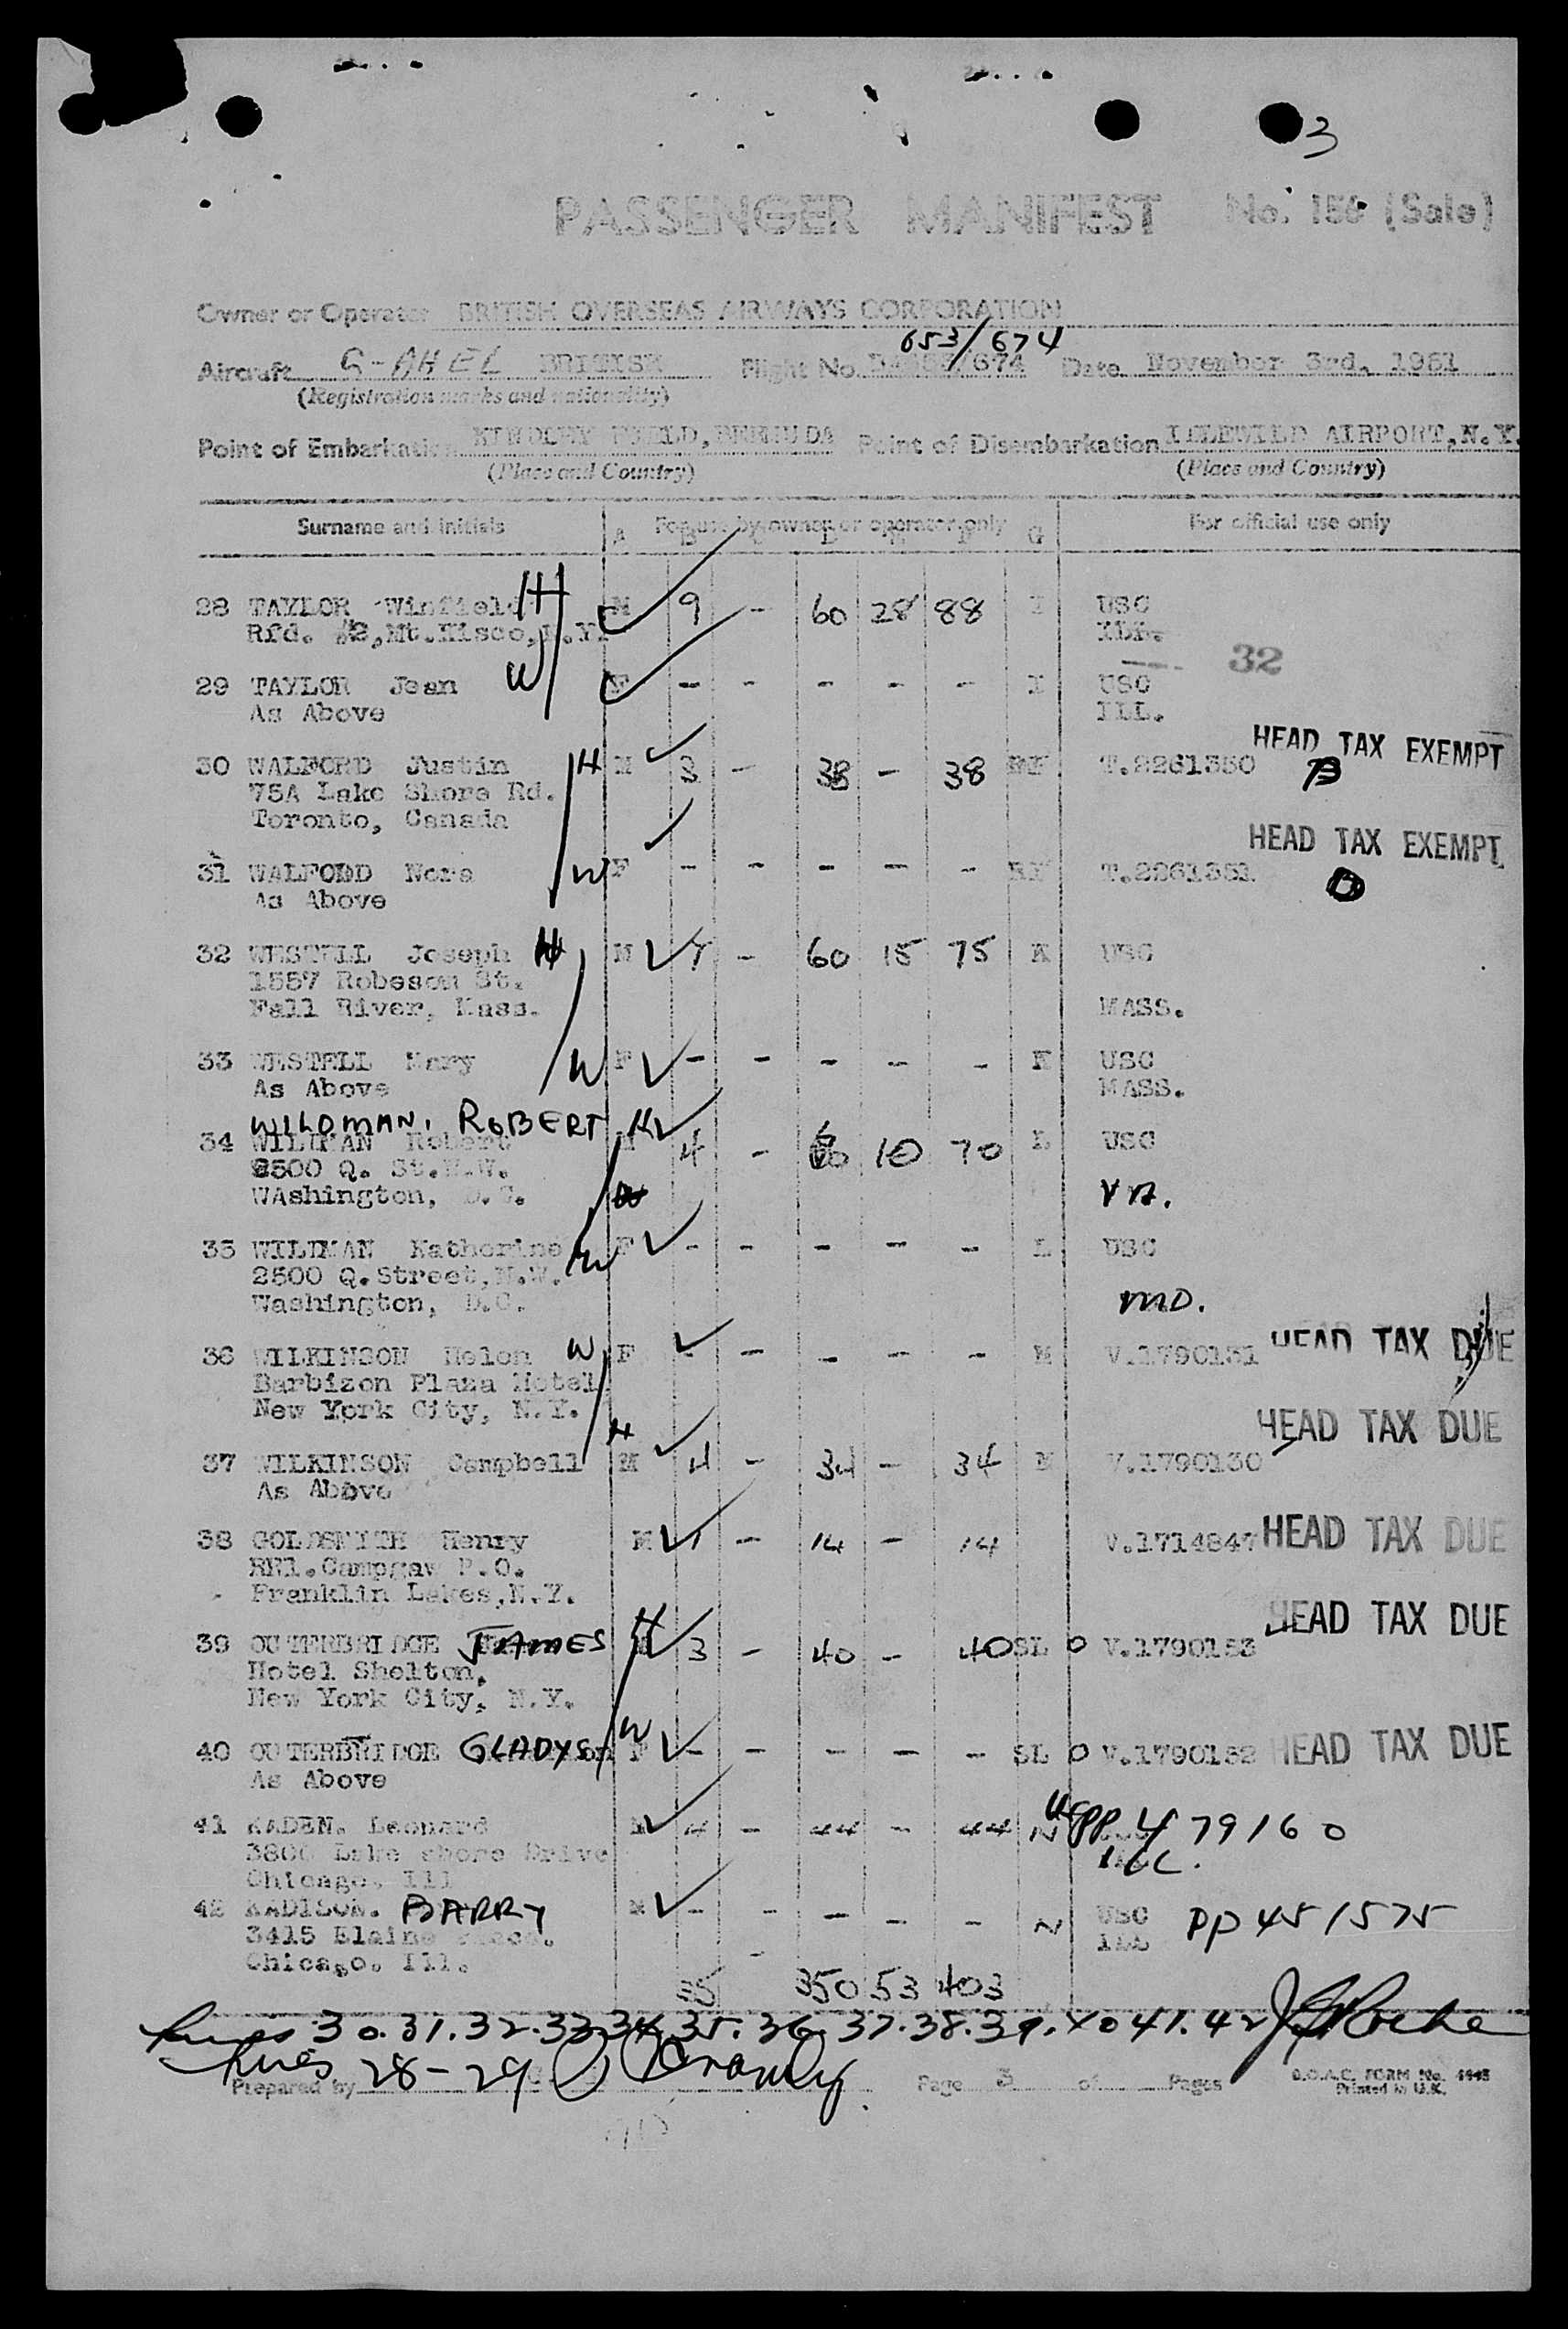 3
PASSENGER MANIFEST No. 156 (Sale)
Owner or Operator BRITISH OVERSEAS AIRWAYS CORPORATION
653/674
Aircraft G-AHEL BRITISH Flight No. /674 Date November 3rd, 1951
(Registration marks and nationality)
Point of Embarkation KINDLEY FIELD, BERMUDA Point of Disembarkation IDLEWILD AIRPORT, N.Y.
(Place and Country) (Place and Country)
Surname and initials For use by owner or operator only For official use only
A B C D E F G
28 TAYLOR Winfield H M 9 - 60 28 88 I USC
Rfd. #2, Mt. Kisco, N.Y. ILL.
32
29 TAYLOR Jean W F - - - - - I USC
As Above ILL.
HEAD TAX EXEMPT
30 WALFORD Justin H M 3 - 38 - 38 T.2261350 B
75A Lake Shore Rd.
Toronto, Canada
HEAD TAX EXEMPT
31 WALFODD Nora W F - - - - - T.2261351
As Above
32 WESTELL Joseph H M 7 - 60 15 75 K USC
1557 Robeson St.
Fall River, Mass. MASS.
33 WESTELL Mary W F - - - - - K USC
As Above MASS.
WILDMAN, ROBERT H
34 WILDMAN Robert M 4 - 60 10 70 L USC
2500 Q. St.N.W.
WAshington, D.C. VA.
35 WILDMAN Katherine W F - - - - - L USC
2500 Q. Street, N.W.
Washington, D.C. MD.
36 WILKINSON Helen W F - - - - - M V.1790131 HEAD TAX DUE
Barbizon Plaza Hotel
New York City, N.Y.
H HEAD TAX DUE
37 WILKINSON Campbell M 4 - 34 - 34 M V.1790130
As Above
38 GOLDSMITH Henry M 1 - 14 - 14 V.1714847 HEAD TAX DUE
RR1. Campgaw P.O.
Franklin Lakes, N.Y.
HEAD TAX DUE
39 OUTERBRIDGE JAMES H M 3 - 40 - 40 SL O V.1790153
Hotel Shelton,
New York City, N.Y.
40 OUTERBRIDGE GLADYS W F - - - - - SL O V.1790152 HEAD TAX DUE
As Above
41 KADEN. Leonard M 4 - 44 - 44 N PP 479160
3800 Lake shore Drive ILL.
Chicago. Ill
42 MADISON. BARRY M - - - - - N USC PP 451575
3415 Elaine Place. ILL
Chicago. Ill.
35 350 53 403
Lines 30.31.32.33.34.35.36.37.38.39.40 41.42 J Roche
Lines 28-29
Prepared by Page 3 of Pages B.O.A.C. FORM No. 4445
Printed in U.K.